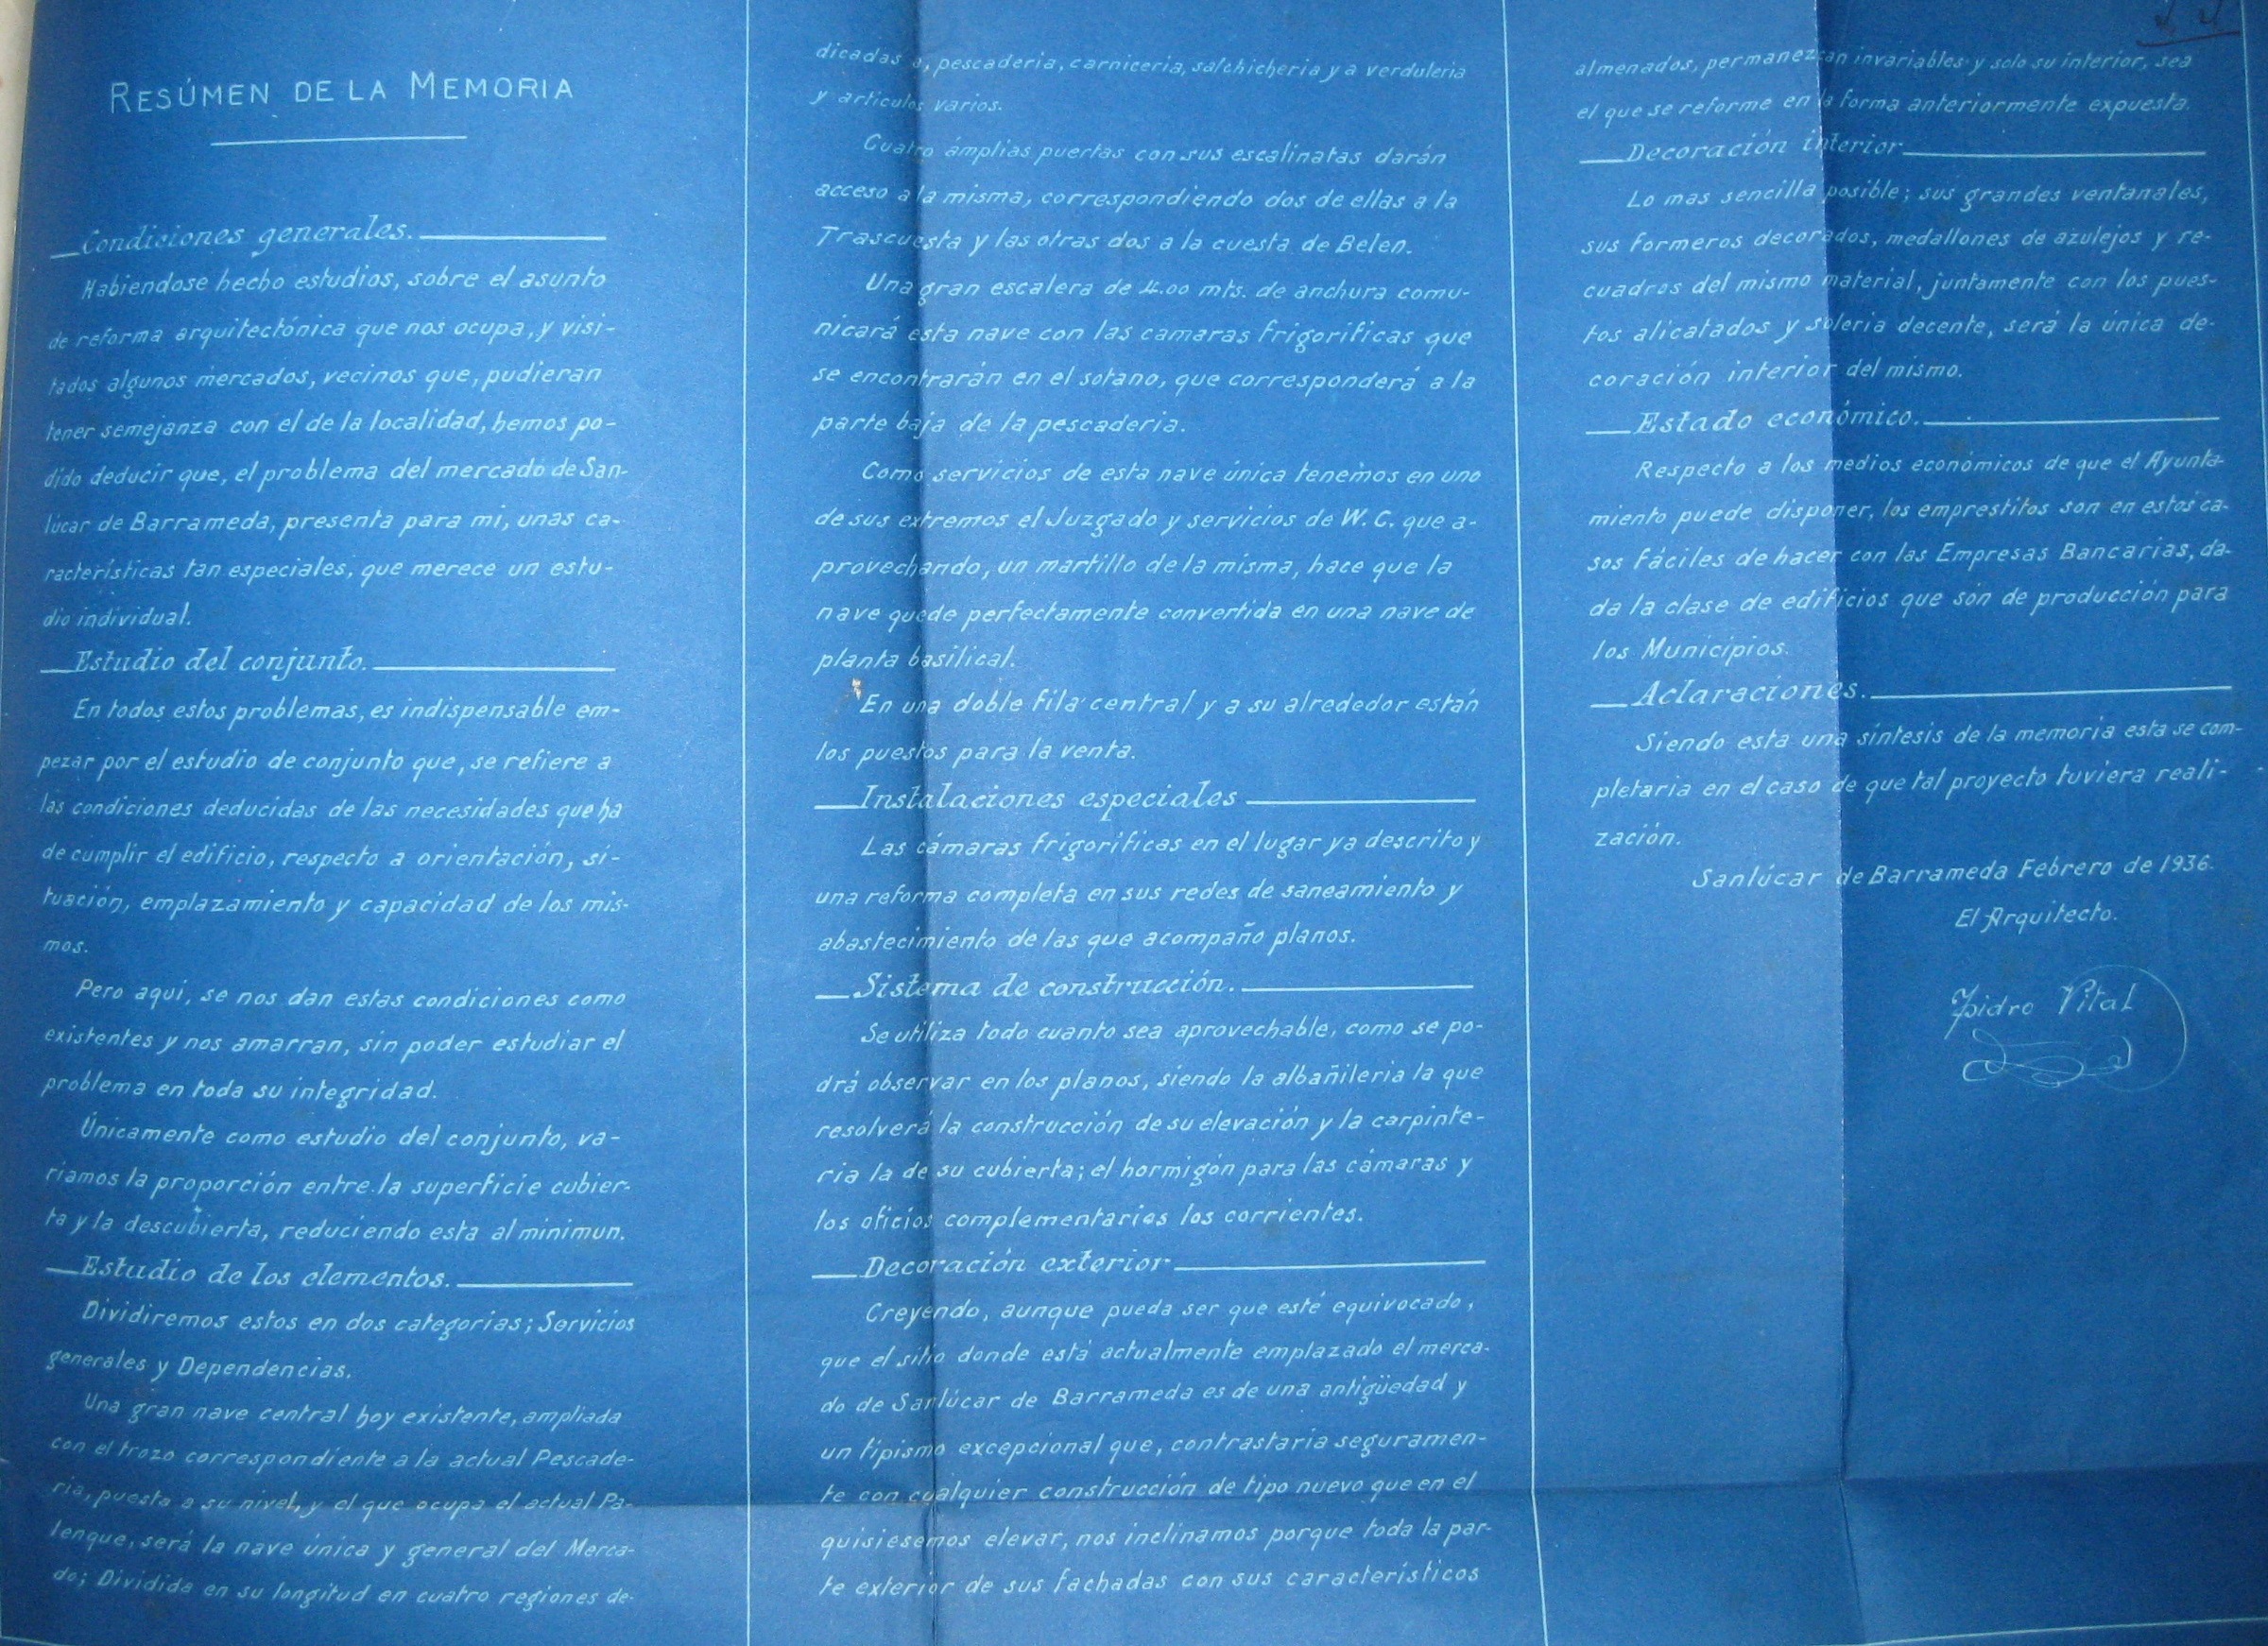 RESÚMEN DE LA MEMORIA
Condiciones generales.
Habiendose hecho estudios, sobre el asunto
de reforma arquitectónica que nos ocupa, y visi-
tados algunos mercados, vecinos que, pudieran
tener semejanza con el de la localidad, hemos po-
dido deducir que, el problema del mercado de San-
lúcar de Barrameda, presenta para mi, unas ca-
racterísticas tan especiales, que merece un estu-
dio individual.
Estudio del conjunto.
En todos estos problemas, es indispensable em-
pezar por el estudio de conjunto que, se refiere a
las condiciones deducidas de las necesidades que ha
de cumplir el edificio, respecto a orientación, si-
tuación, emplazamiento y capacidad de los mis-
mos.
Pero aqui, se nos dan estas condiciones como
existentes y nos amarran, sin poder estudiar el
problema en toda su integridad.
Únicamente como estudio del conjunto, va-
riamos la proporción entre la superficie cubier-
ta y la descubierta, reduciendo esta al minimun.
Estudio de los elementos.
Dividiremos estos en dos categorias; Servicios
generales y Dependencias.
Una gran nave central hoy existente, ampliada
con el trozo correspondiente a la actual Pescade-
ria, puesta a su nivel, y el que ocupa el actual Pa-
lenque, será la nave única y general del Merca-
do; Dividida en su longitud en cuatro regiones de-
dicadas a, pescaderia, carniceria, salchicheria y a verduleria
y articulos varios.
Cuatro ámplias puertas con sus escalinatas darán
acceso a la misma, correspondiendo dos de ellas a la
Trascuesta y las otras dos a la cuesta de Belen.
Una gran escalera de 4.00 mts. de anchura comu-
nicará esta nave con las camaras frigorificas que
se encontrarán en el sotano, que corresponderá a la
parte baja de la pescaderia.
Como servicios de esta nave única tenemos en uno
de sus extremos el Juzgado y servicios de W.C. que a-
provechando, un martillo de la misma, hace que la
nave quede perfectamente convertida en una nave de
planta basilical.
En una doble fila central y a su alrededor están
los puestos para la venta.
Instalaciones especiales
Las cámaras frigoríficas en el lugar ya descrito y
una reforma completa en sus redes de saneamiento y
abastecimiento de las que acompaño planos.
Sistema de construcción.
Se utiliza todo cuanto sea aprovechable, como se po-
drá observar en los planos, siendo la albañileria la que
resolverá la construcción de su elevación y la carpinte-
ria la de su cubierta; el hormigón para las cámaras y
los oficios complementarios los corrientes.
Decoración exterior
Creyendo, aunque pueda ser que esté equivocado,
que el sitio donde está actualmente emplazado el merca-
do de Sanlúcar de Barrameda es de una antigüedad y
un tipismo excepcional que, contrastaria seguramen-
te con cualquier construcción de tipo nuevo que en el
quisiesemos elevar, nos inclinamos porque toda la par-
te exterior de sus fachadas con sus característicos
almenados, permanezcan invariables y solo su interior, sea
el que se reforme en la forma anteriormente expuesta.
Decoración interior
Lo mas sencilla posible; sus grandes ventanales,
sus formeros decorados, medallones de azulejos y re-
cuadros del mismo material, juntamente con los pues-
tos alicatados y soleria decente, será la única de-
coración interior del mismo.
Estado económico.
Respecto a los medios económicos de que el Ayunta-
miento puede disponer, los emprestitos son en estos ca-
sos fáciles de hacer con las Empresas Bancarias, da-
da la clase de edificios que són de producción para
los Municipios.
Aclaraciones.
Siendo esta una síntesis de la memoria esta se com-
pletaria en el caso de que tal proyecto tuviera reali-
zación.
Sanlúcar de Barrameda Febrero de 1936.
El Arquitecto.
Isidro Vital